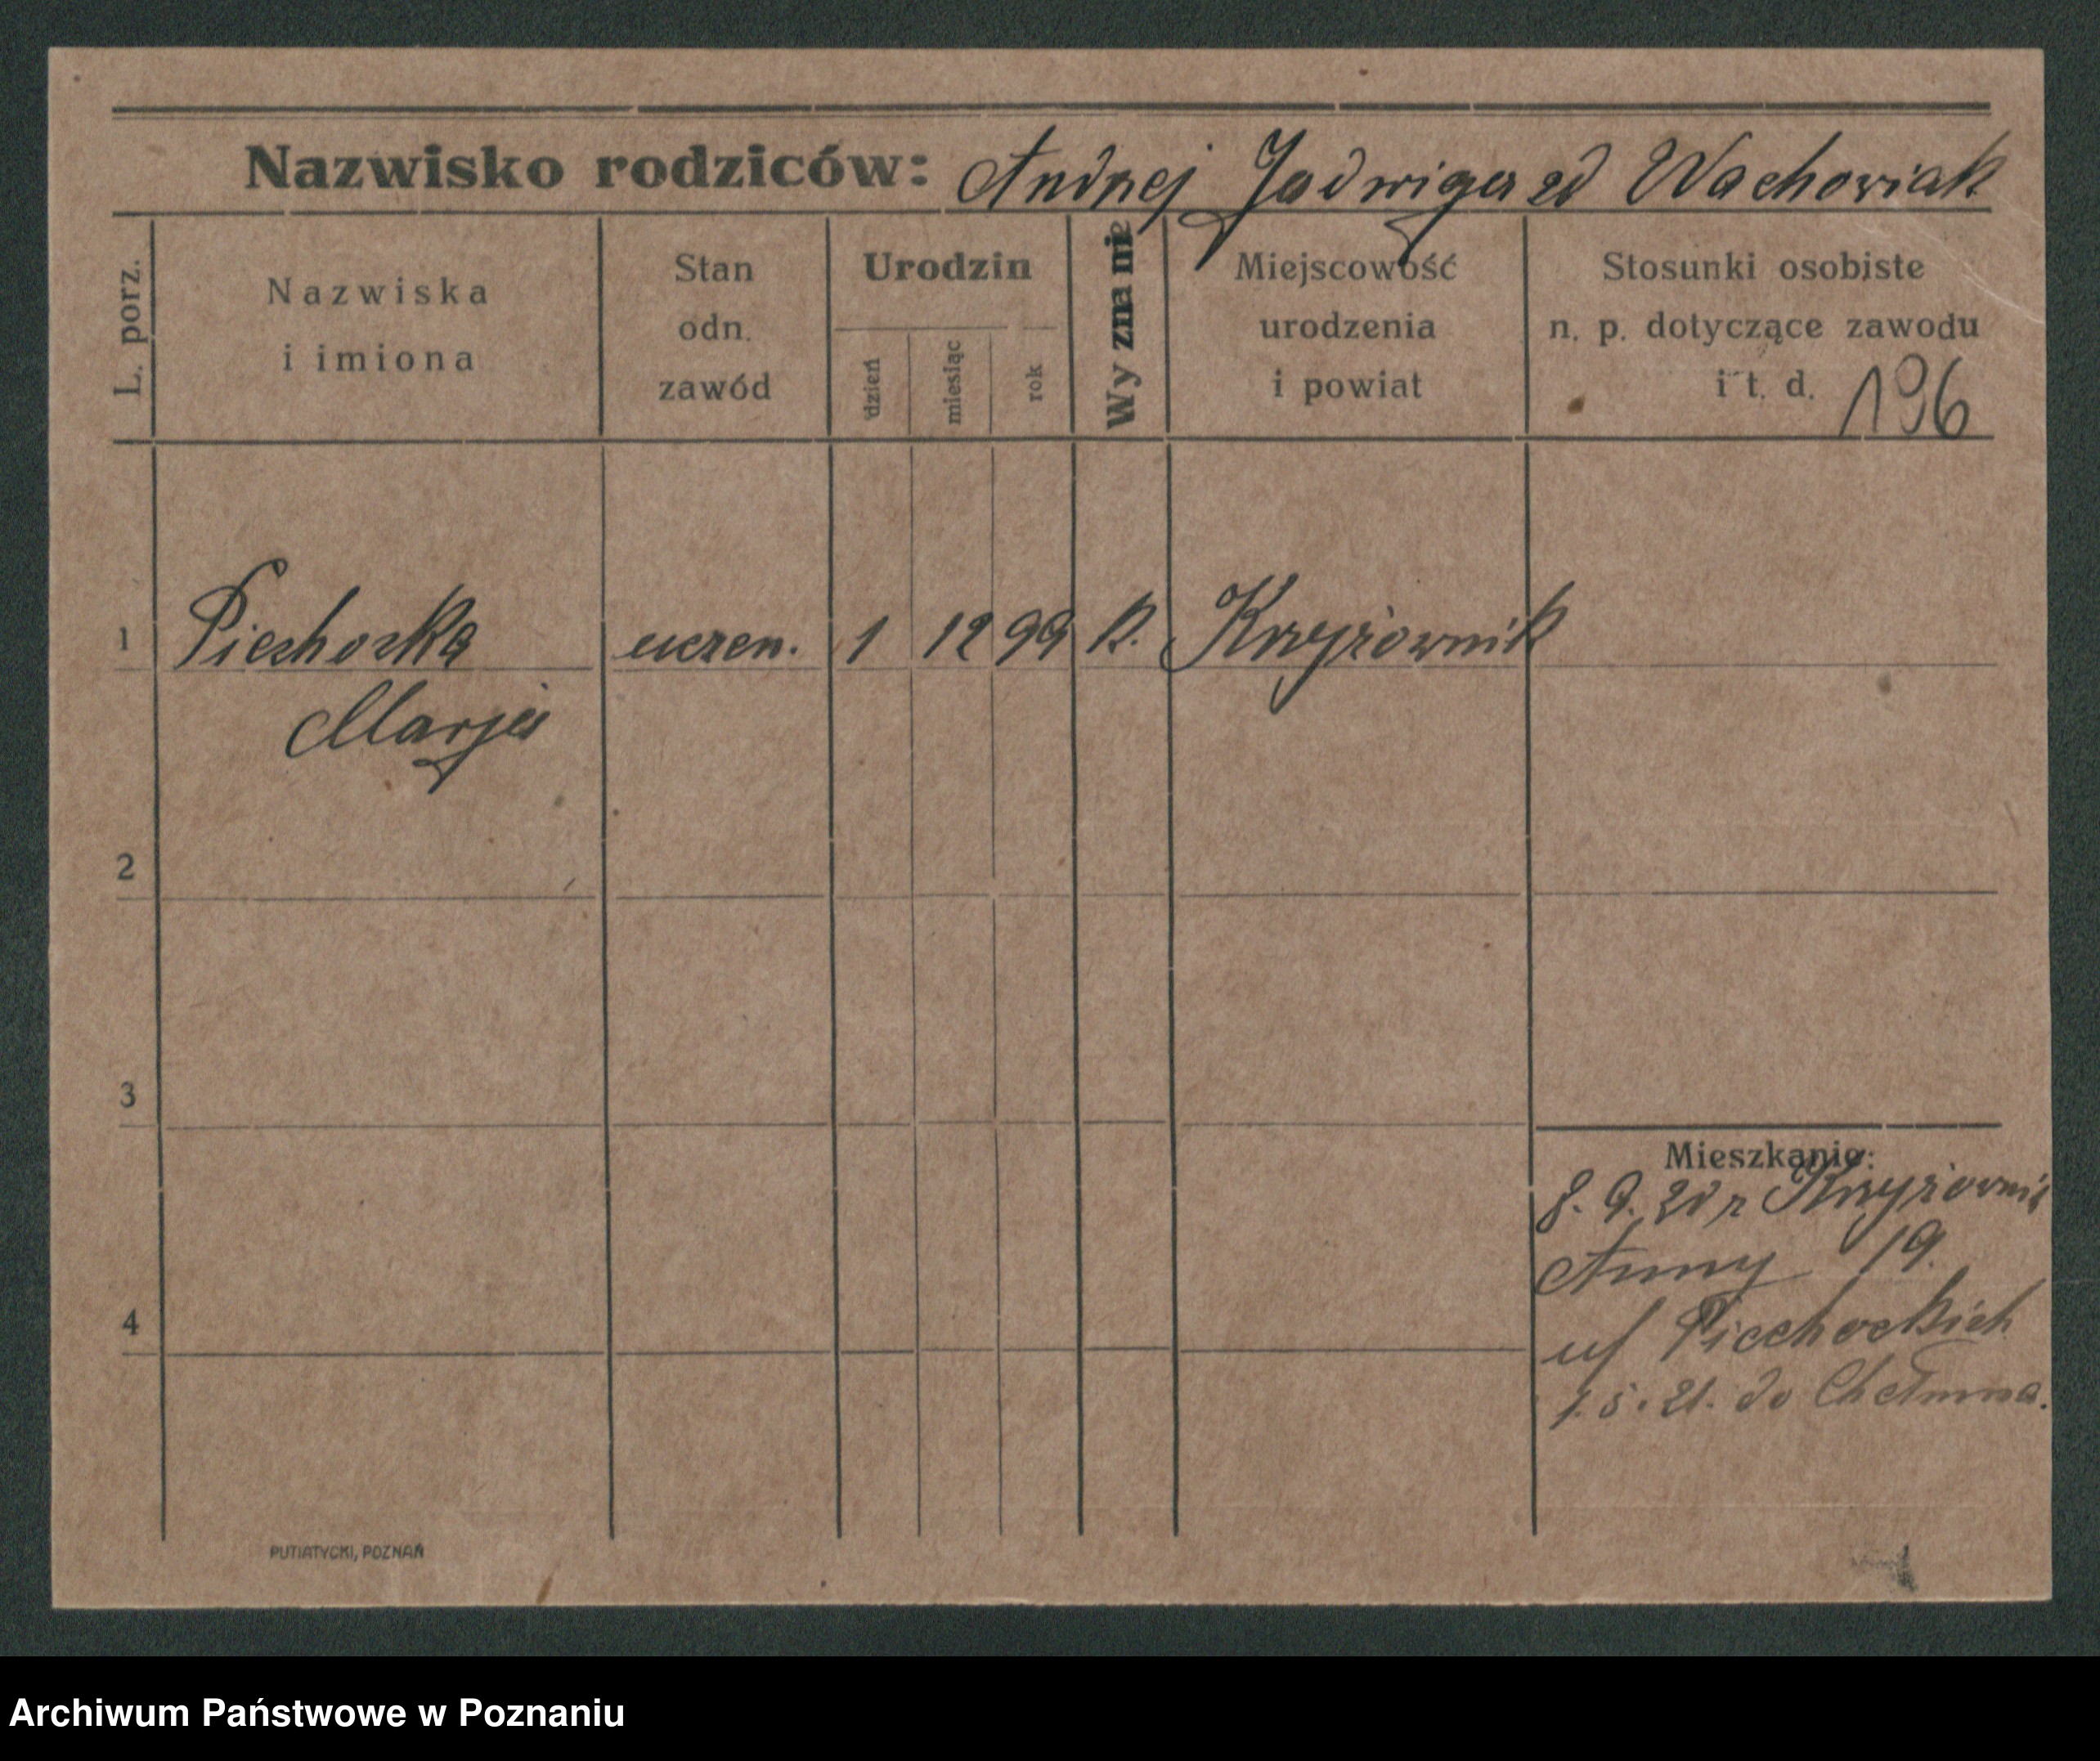 Nazwisko rodziców: Andrzej Jadwiga zd Wachowiak
L. porz.
Nazwiska
i imiona
Stan
odn.
zawód
Urodzin
dzień
miesiąc
rok
Wyznanie
Miejscowość
urodzenia
i powiat
Stosunki osobiste
n. p. dotyczące zawodu
i t. d. 196
1 Piechocka uczen. 1 12 99 k. Krzyżownik
Marja
2
3
Mieszkanie:
8. 9. 20 z Krzyżownik
Anny 19.
4
u/ Piechockich
1. 5. 21. do Chełmna.
PUTIATYCKI, POZNAŃ
Archiwum Państwowe w Poznaniu